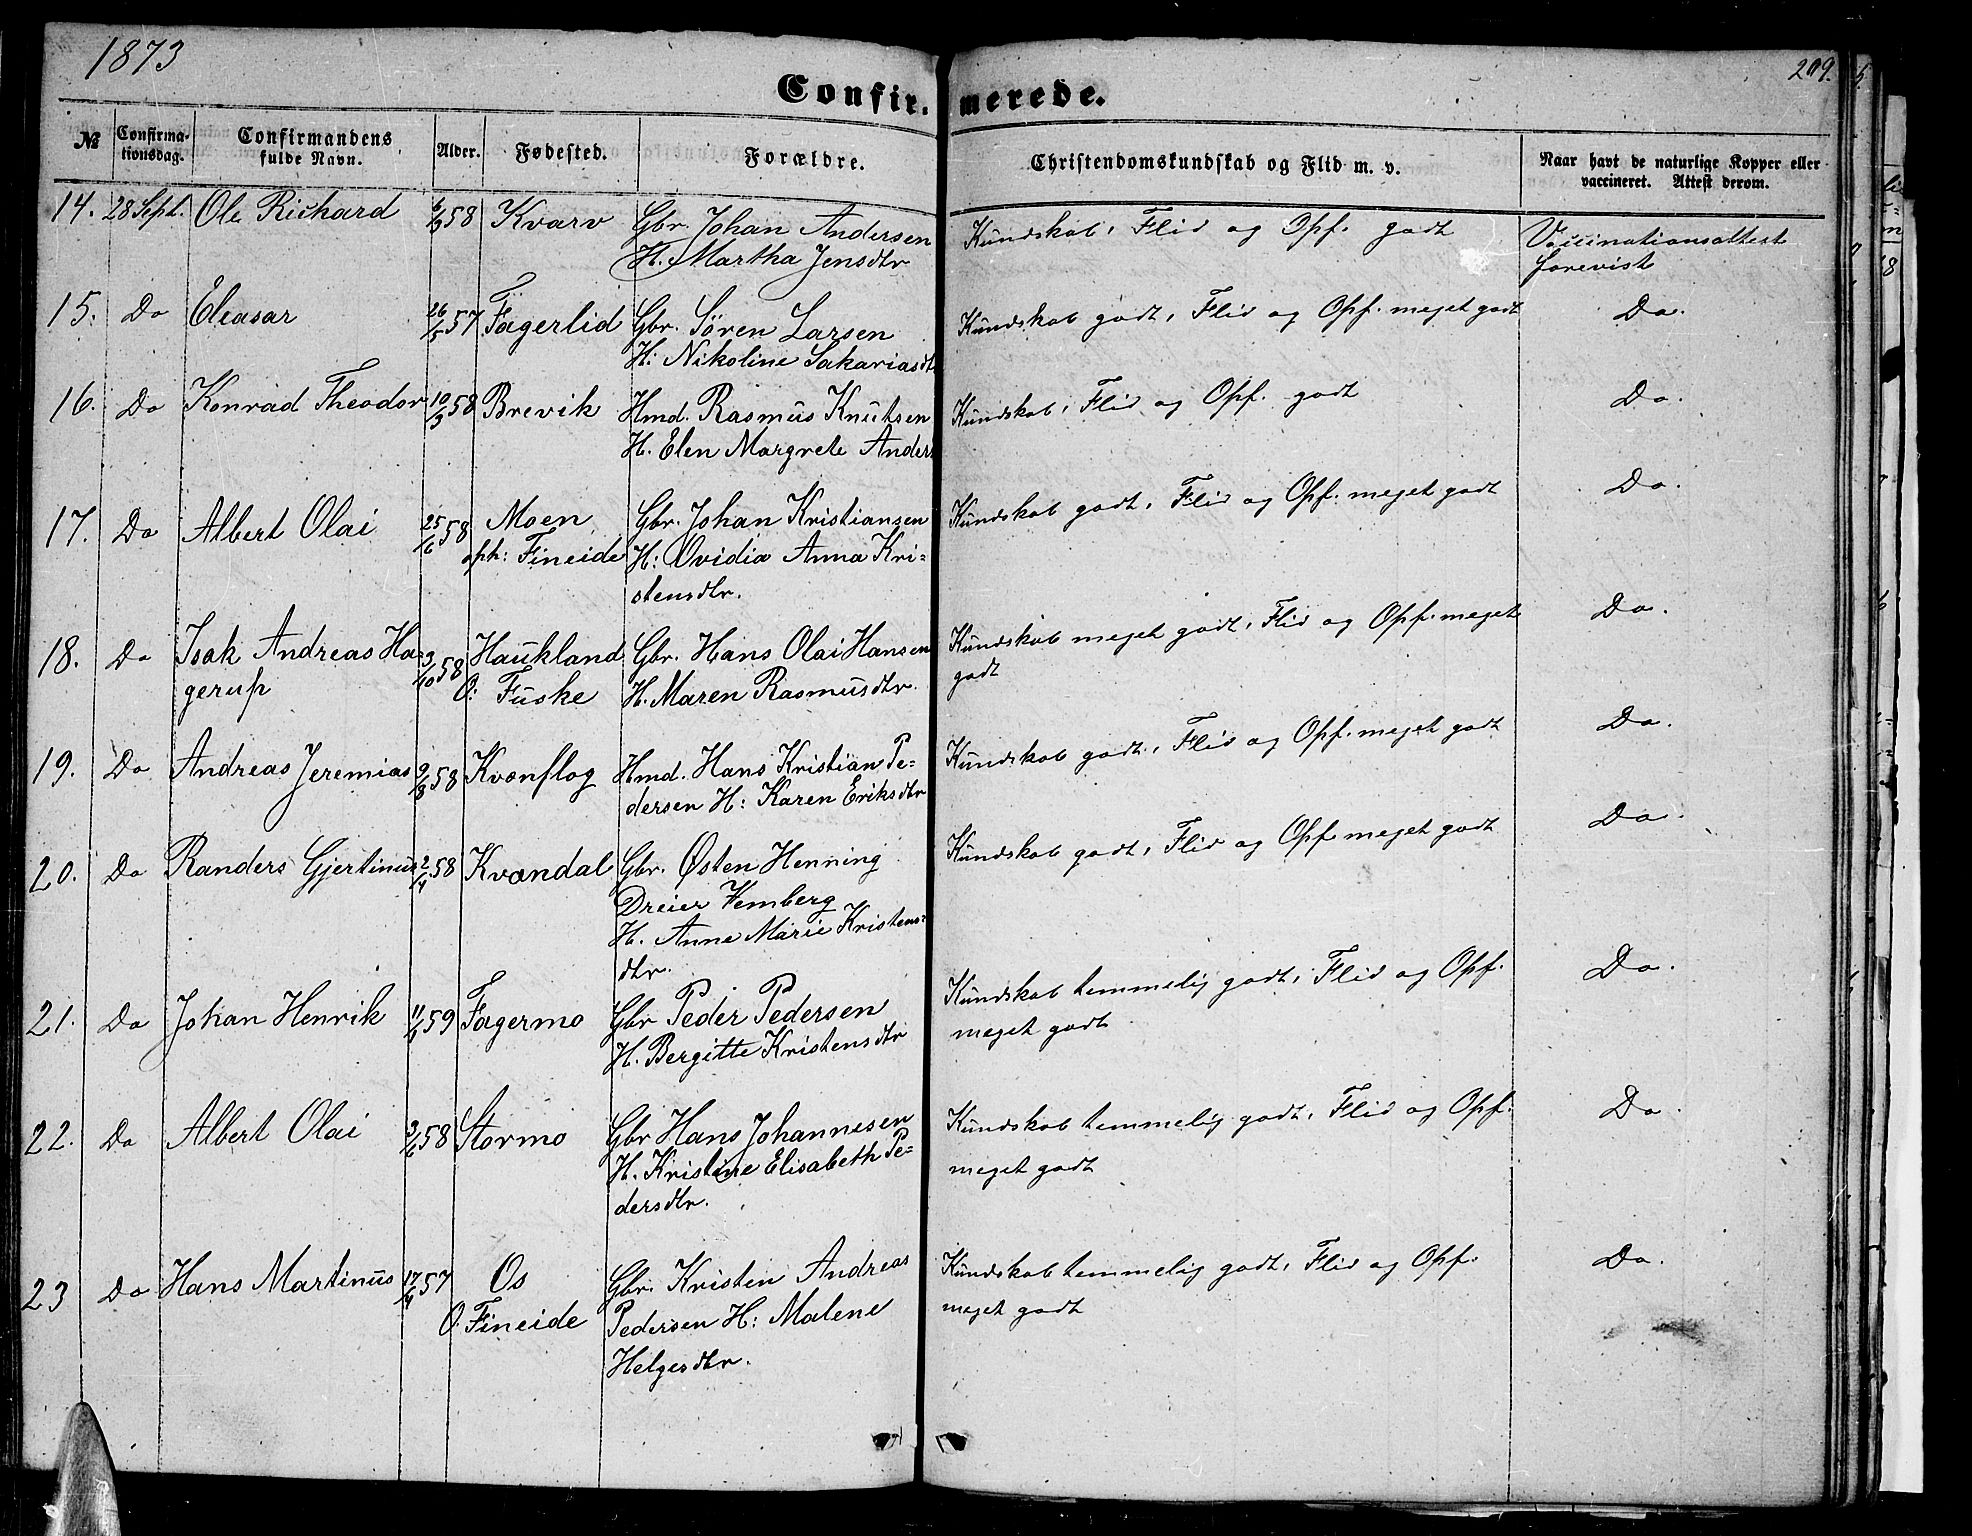 1873
209.
Confirmerede.
№ Confirmationsdag. Confirmandens fulde Navn. Alder. Fødested. Forældre. Christendomskundskab og Flid m. v. Naar havt de naturlige Kopper eller vaccineret. Attest derom.
14. 28 Sept. Ole Richard 58 Kvarv Gbr. Johan Andersen Kundskab, Flid og Opf. godt Vaccinationsattest
H. Martha Jensdtr forevist
15. Do Eleasar 26/5 57 Fagerlid Gbr. Sören Larsen Kundskab godt, Flid og Opf. meget godt Do.
H: Nikoline Sakariasdt
16. Do Konrad Theodor 10/3 58 Brevik Hmd. Rasmus Knutsen Kundskab, Flid og Opf. godt Do.
H. Elen Margrete Anders
17. Do Albert Olai 25/6 58 Moen Gbr. Johan Kristiansen Kundskab godt, Flid og Opf. meget godt Do.
oph: Fineide H: Ovidia Anna Kri=
stensdtr.
18. Do Isak Andreas Ha= 3/10 58 Haukland Gbr. Hans Olai Hansen Kundskab meget godt, Flid og Opf. meget Do.
gerup O: Fuske H. Maren Rasmusdtr. godt
19. Do Andreas Jeremias 9/8 58 Kvænflog Hmd. Hans Kristian Pe= Kundskab godt, Flid og Opf. meget godt Do.
dersen H: Karen Eriksdtr
20. Do Randers Gjertinus 2/4 58 Kvændal Gbr. Østen Henning Kundskab godt, Flid og Opf. meget godt Do.
Dreier Vemberg
H. Anne Marie Kristens=
dtr.
21. Do Johan Henrik 59 Fagermo Gbr Peder Pedersen Kundskab temmelig godt, Flid og Opf. Do.
H. Bergitte Kristensdtr meget godt
22. Do Albert Olai 3/6 58 Stormo Gbr Hans Johannesen Kundskab temmelig godt, Flid og Opf. Do.
H. Kristine Elisabeth Pe= meget godt
dersdtr.
23 Do Hans Martinus 17/4 57 Os Gbr. Kristen Andreas Kundskab temmelig godt, Flid og Opf. Do.
O: Fineide Pedersen H: Malene meget godt
Helgesdtr.